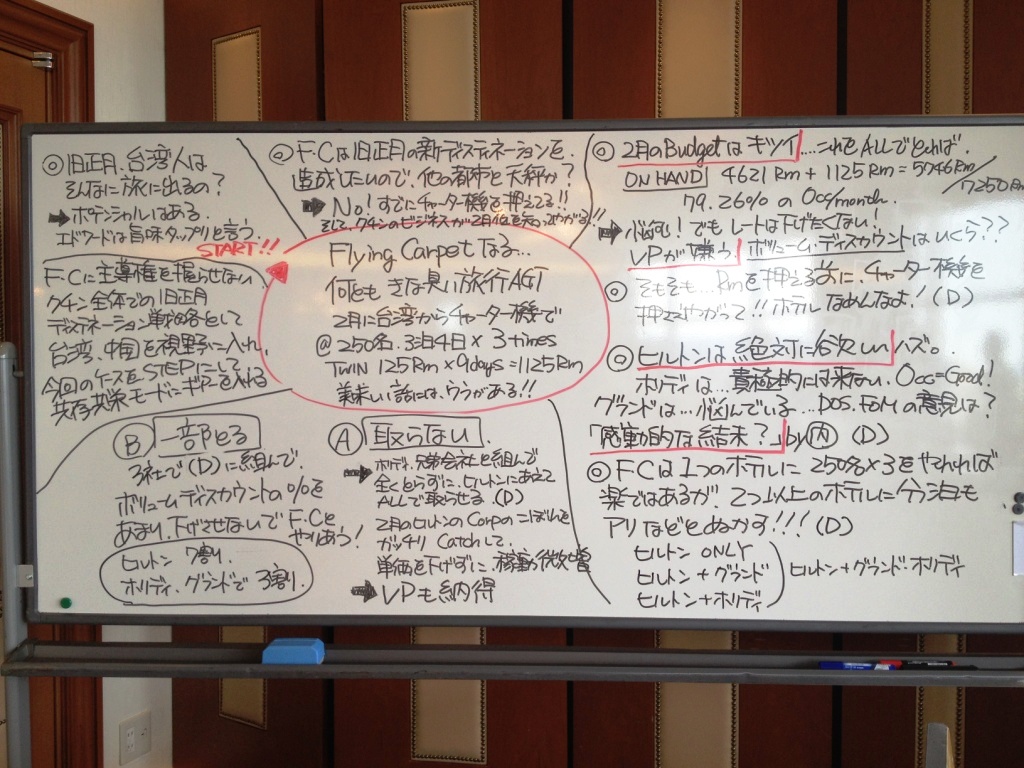 ◎旧正月、台湾人は
そんなに旅に出るの?
➡ポテンシャルはある。
エドワードは旨味タップリと言う。
START!!
F.Cに主導権を握らせない
クチン全体での旧正月
ディスティネーション戦略として
台湾、中国を視野に入れ、
今回のケースをSTEPにして
共存共栄モードにギアを入れる
◎F・Cは旧正月の新ディスティネーションを、
造成したいので、他の都市と天秤か?
➡No! すでにチャーター機を押えてる!!
そして、クチンのビジネスが2月低を
Flying Carpetなる…
何とも きな臭い旅行AGT
2月に台湾からチャーター機で
@250名、3泊4日×3times
TWIN 125Rm×9days=1125Rm
美味い話には、ウラがある!!
◎2月のBudgetはキツイ....これをALLでとれば、
ON HAND 4621Rm+1125Rm=5746Rm/7250Rm
79.26%のOcc/month.
➡悩む! でもレートは下げたくない!
VPが嫌う ボリューム・ディスカウントはいくら??
◎そもそも…Rmを押える前に、チャーター機を
押えやがって!! ホテルなめんなよ!(D)
◎ヒルトンは絶対に欲しいハズ。
ホリディは…積極的には来ない。Occ=Good!
グランドは…悩んでいる…DOS.FOMの意見は?
「感動的な結末?」by内 (D)
◎FCは1つのホテルに250名×3をやれれば
楽ではあるが、2つ以上のホテルに分泊も
アリなどとぬかす!!!(D)
ヒルトン ONLY
ヒルトン+グランド
ヒルトン+ホリディ
ヒルトン+グランド・ホリディ
Ⓑ 一部とる
3社で(D)に組んで、
ボリュームディスカウントの%を
あまり下げさせないでF.Cと
やりあう!
ヒルトン 7割り、
ホリディ、グランドで3割り、
Ⓐ 取らない
➡ホリディ、兄弟会社と組んで
全くとらずに、ヒルトンにあえて
ALLで取らせる(D)
2月のヒルトンのCorpのこぼれを
ガッチリCatchして、
単価を下げずに、稼動微増
➡VPも納得